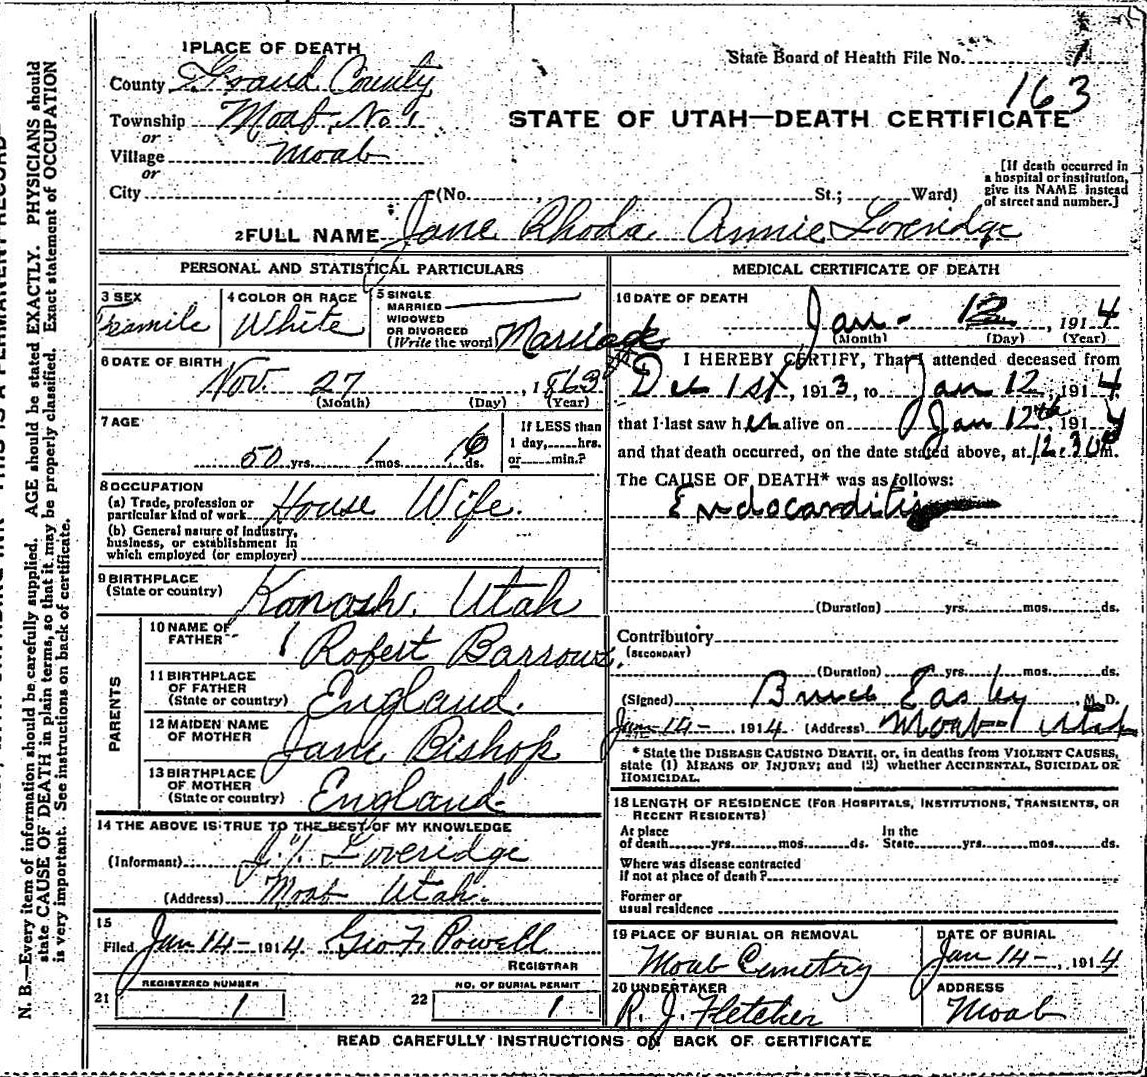 1 PLACE OF DEATH
County Grand County
Township Moab No 1
or
Village Moab
or
City (No. St.; Ward)
State Board of Health File No. 1
163
STATE OF UTAH—DEATH CERTIFICATE
[If death occurred in
a hospital or institution,
give its NAME instead
of street and number.]
2 FULL NAME Jane Rhoda Annie Loveridge
PERSONAL AND STATISTICAL PARTICULARS
3 SEX
Feamile
4 COLOR OR RACE
White
5 SINGLE
MARRIED
WIDOWED
OR DIVORCED
(Write the word)
6 DATE OF BIRTH
Nov. 27, 1863
(Month) (Day) (Year)
7 AGE
50 yrs. 1 mos. 16 ds.
If LESS than
1 day, hrs.
or min.?
8 OCCUPATION
(a) Trade, profession or
particular kind of work House Wife.
(b) General nature of industry,
business, or establishment in
which employed (or employer)
9 BIRTHPLACE
(State or country) Kanosh. Utah
PARENTS
10 NAME OF
FATHER Robert Barrows
11 BIRTHPLACE
OF FATHER
(State or country) England.
12 MAIDEN NAME
OF MOTHER Jane Bishop
13 BIRTHPLACE
OF MOTHER
(State or country) England.
14 THE ABOVE IS TRUE TO THE BEST OF MY KNOWLEDGE
(Informant) Loveridge
(Address) Moab Utah.
15
Filed Jan 14- 1914 Geo F. Powell
REGISTRAR
21 REGISTERED NUMBER
1
22 NO. OF BURIAL PERMIT
1
MEDICAL CERTIFICATE OF DEATH
16 DATE OF DEATH
Jan - 12, 1914
(Month) (Day) (Year)
I HEREBY CERTIFY, That I attended deceased from
Dec 1st, 1913, to Jan 12, 1914
that I last saw her alive on Jan 12th 1914
and that death occurred, on the date stated above, at 12:30 P m.
The CAUSE OF DEATH* was as follows:
Endocarditis
(Duration) yrs. mos. ds.
Contributory
(SECONDARY)
(Duration) yrs. mos. ds.
(Signed) Easley M. D.
Jan 14-, 1914 (Address) Moab- Utah
* State the DISEASE CAUSING DEATH, or, in deaths from VIOLENT CAUSES,
state (1) MEANS OF INJURY; and (2) whether ACCIDENTAL, SUICIDAL OR
HOMICIDAL.
18 LENGTH OF RESIDENCE (FOR HOSPITALS, INSTITUTIONS, TRANSIENTS, OR
RECENT RESIDENTS)
At place
of death yrs. mos. ds.
In the
State yrs. mos. ds.
Where was disease contracted
if not at place of death?
Former or
usual residence
19 PLACE OF BURIAL OR REMOVAL
Moab Cemetry
DATE OF BURIAL
Jan 14-, 1914
20 UNDERTAKER
R. J. Fletcher
ADDRESS
Moab
READ CAREFULLY INSTRUCTIONS ON BACK OF CERTIFICATE
N. B.—Every item of information should be carefully supplied. AGE should be stated EXACTLY. PHYSICIANS should
state CAUSE OF DEATH in plain terms, so that it may be properly classified. Exact statement of OCCUPATION
is very important. See instructions on back of certificate.